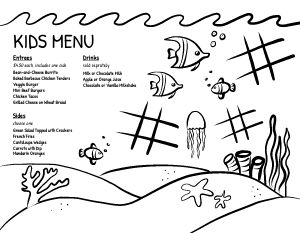 KIDS MENU
Entrees
$4.50 each, includes one side
Bean-and-Cheese Burrito
Baked Barbecue Chicken Tenders
Veggie Burger
Mini Beef Burgers
Chicken Tacos
Grilled Cheese on Wheat Bread
Sides
choose one
Green Salad Topped with Crackers
French Fries
Cantaloupe Wedges
Carrots with Dip
Mandarin Oranges
Drinks
sold separately
Milk or Chocolate Milk
Apple or Orange Juice
Chocolate or Vanilla Milkshake